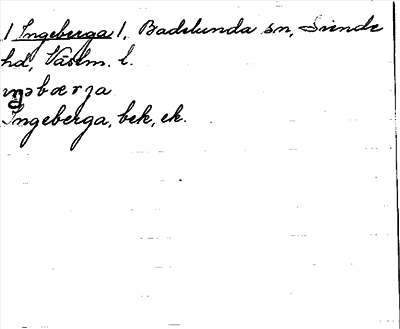 / Ingeberga /, Badelunda sn, Siende
hd, Västm. l.
Ingeberga, bek, ek.